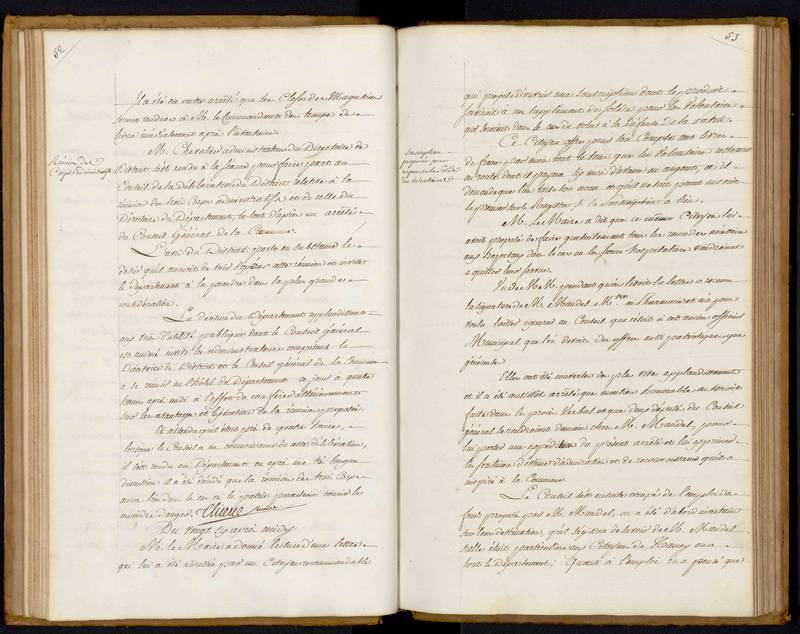 52
Il a été en outre arrêté que les Clefs des Magasins
seront rendues à M. le Commandant des troupes de
ligne immédiatement après l'inventaire.
Réunion des
Corps administratifs
M. Chevalier administrateur du Directoire de
District s'est rendu à la séance pour faire part au
Conseil de la délibération du District relative à la
réunion des trois Corps administratifs et de celle du
Directoire du Département, le tout d'après un arrêté
du Conseil Général de la Commune.
L'avis du District porte en substance le
désir qu'il aurait de voir s'opérer cette réunion et invite
le département à la prendre dans la plus grande
considération.
La décision du Département applaudissant
aux vues d'utilité publique dont le Conseil général
est animé invite les administrateurs composant le
Directoire de District et le Conseil général de la Commune
à se réunir en l'hôtel du Département ce jour à quatre
heures après midi à l'effet de conférer ultérieurement
sur les avantages et opération de la réunion proposée.
Et attendu qu'il était près de quatre heures,
lorsque le Conseil a eu connaissance de cette délibération,
il s'est rendu au Département où après une très longue
discussion il a été décidé que la réunion des trois Corps
aura lieu dans le cas où la patrie paraitrait courir le
moindre danger.
Du vingt après midi
M. le Maire a donné lecture d'une lettre
qui lui a été adressée par un Citoyen recommandable
53
qui propose d'ouvrir une souscription dont le produit
servirait à un supplément de solde pour les Volontaires
qui seraient dans le cas de voler à la défense de la Patrie.
Souscription
proposée pour
augmenter la solde
des volontaires
Ce Citoyen offre pour son Compte
de france par mois tout le tems que les Volontaires resteront
en route dont il payera
demande que l'on taise son nom et qu'il ne soit point inscrit
le premier sur le Registre si la souscription a lieu.
M. Le Maire a dit que ce même Citoyen lui
avait proposé de faire gratuitement tous les remèdes nécessaires
aux hopitaux dans le cas où les sœurs hospitalières viendraient
à quitter leur service.
Un de MM. pendant qu'on lisait la lettre a reconnu
la signature de M. Mandel M. en Pharmacie et n'a pas
voulu laisser ignorer au Conseil que c'était à cet ancien officier
Municipal que l'on devait des offres aussi patriotiques que
généreuses.
Elles ont été couvertes des plus vifs applaudissements
et il a été aussitôt arrêté que mention honorable en serait
faite dans le procès Verbal et que deux députés du Conseil
général se rendraient demain chez M. Mandel, pour
lui porter une expédition du présent arrêté et lui exprimer
les sentimens d'estime d'admiration et de reconnaissance qu'il a
inspiré à la Commune.
Le Conseil s'est ensuite occupé de l'emploi des
fonds proposés par M. Mandel, on a été d'abord incertain
sur leur destination, qu'il s'agissait de savoir de M. Mandel
si elle était particulière aux Citoyens de Nancy ou à
tout le Département; Quant à l'emploi on a pensé que